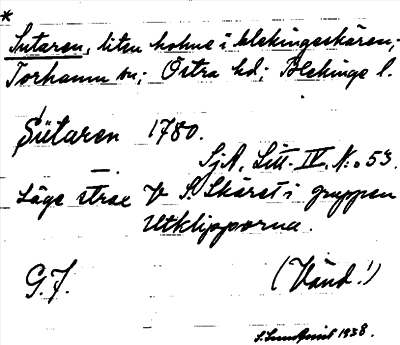 *
Sutaren, liten holme i blekingeskären;
Torhamn sn; Östra hd; Blekinge l.
Sütaren 1780.
SjA. Litt. IV, N:o 53.
Läge strax V S. Skäret i gruppen
Utklipporna.
G.F. (Vänd!)
S. Lundquist 1938.